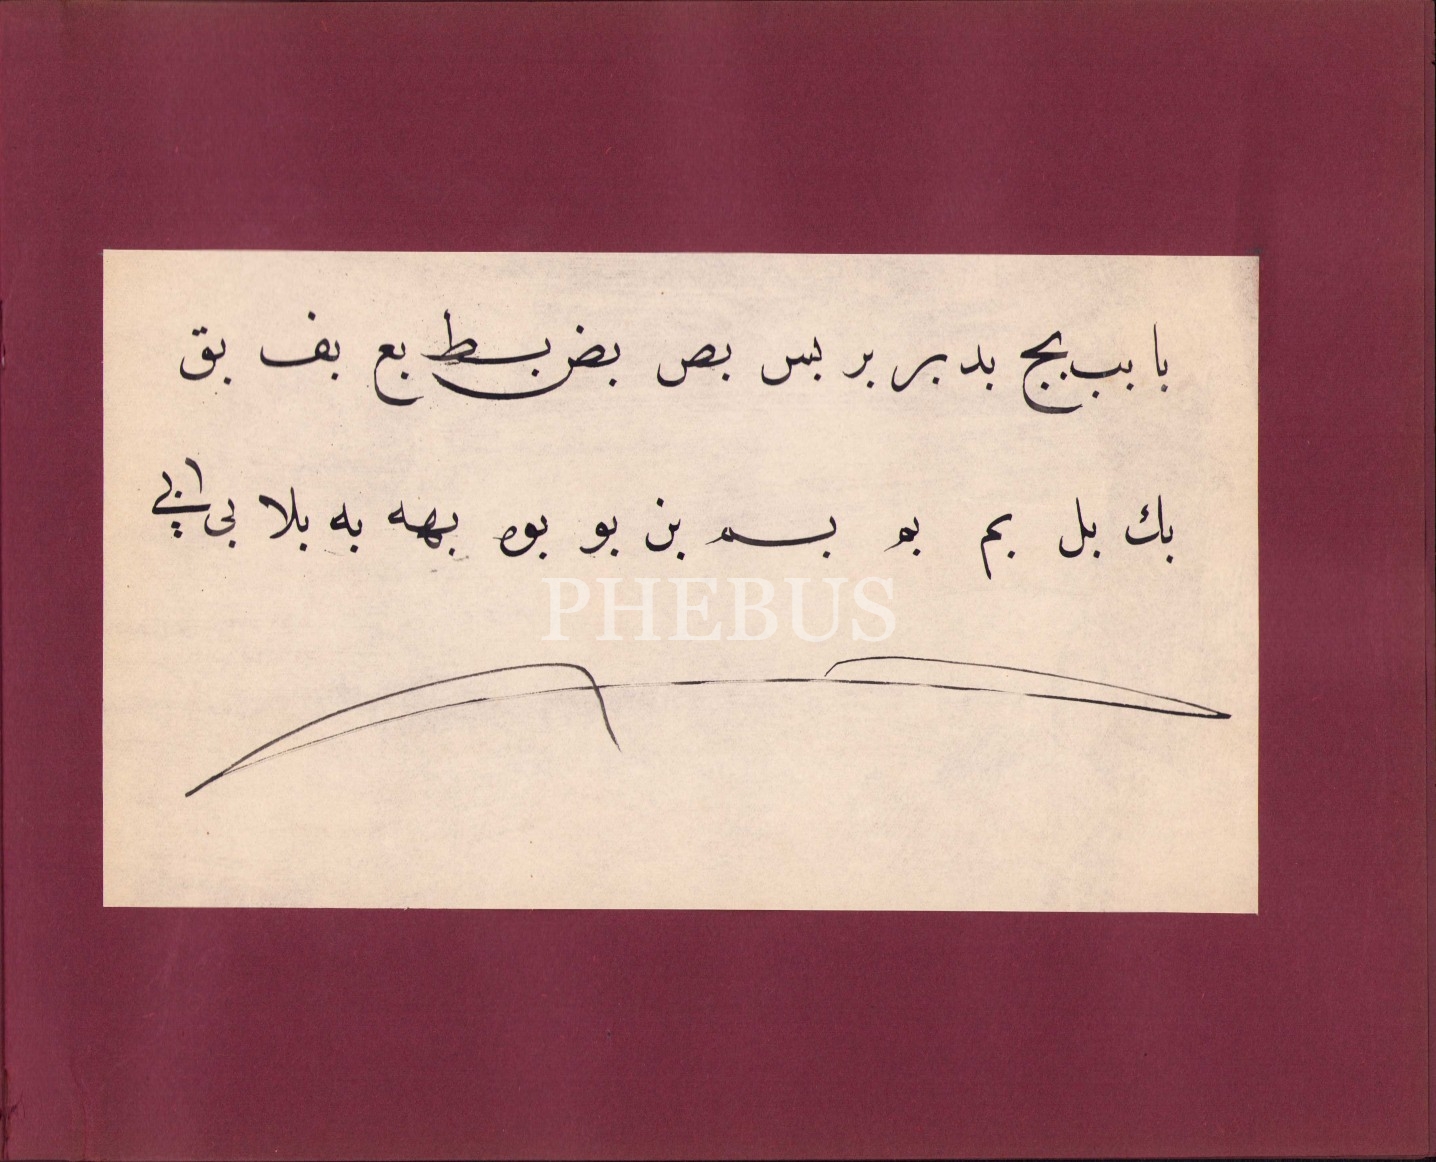 با بب بج بد بر بر بس بص بض بسط بع بف بق
بك بل بم بم بسم بن بو بوه بهه به بلا بى
PHEBUS